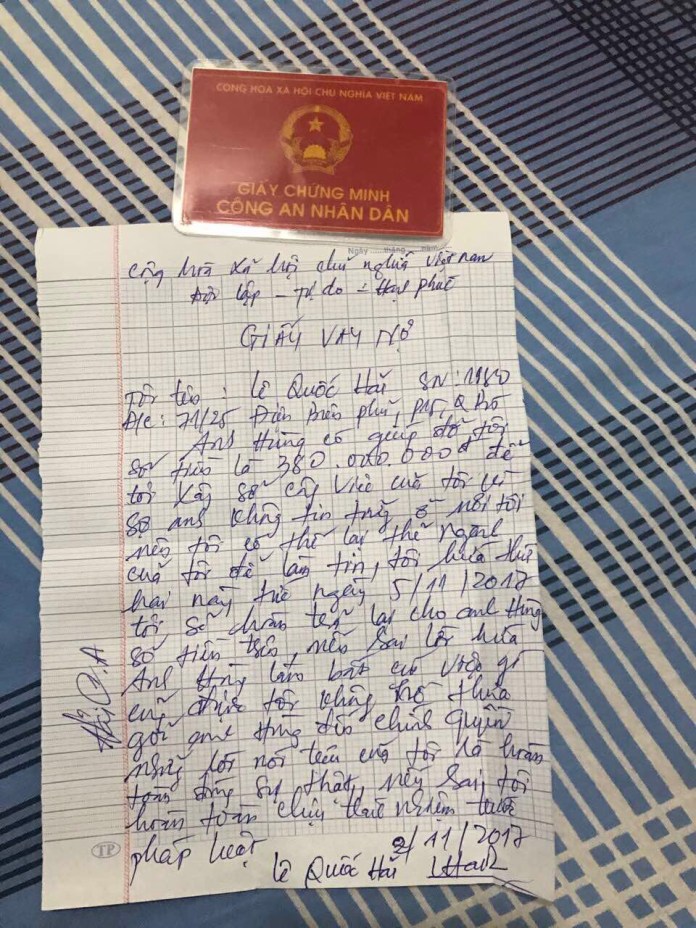 CỘNG HÒA XÃ HỘI CHỦ NGHĨA VIỆT NAM
GIẤY CHỨNG MINH
CÔNG AN NHÂN DÂN
Ngày tháng năm
Cộng hòa xã hội chủ nghĩa Việt Nam
Độc lập - Tự do - Hạnh phúc
GIẤY VAY NỢ
Tôi tên : Lê Quốc Hải SN: 1980
Đ/c: 71/25 Điện Biên phủ, P15, Q
Anh Hùng có giúp đỡ tôi
số tiền là 380.000.000đ để
tôi công việc của tôi vì
sợ anh không tin tưởng ở nơi tôi
nên tôi có thế lại thẻ ngành
của tôi để làm tin, tôi hứa thứ
hai này từ ngày 5/11/2017
tôi sẽ hoàn trả lại cho anh Hùng
số tiền trên, nếu sai lời hứa
Anh Hùng làm bất cứ việc gì
cũng được tôi không
anh Hùng đến chính quyền
những lời nói trên của tôi là hoàn
toàn đúng sự thật, nếu sai tôi
hoàn toàn chịu trách nghiệm trước
pháp luật
2/11/2017
Lê Quốc Hải
TP